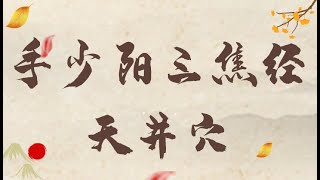 手少阳三焦经
天井穴